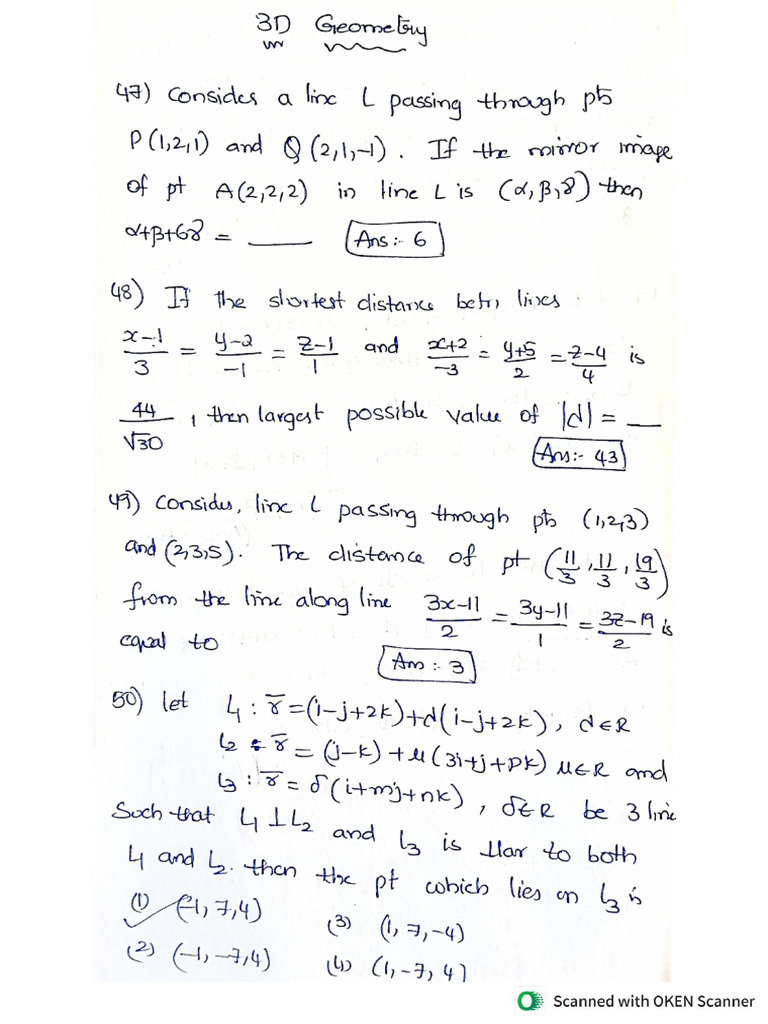 3D Geometry
47) Consider a line L passing through pts
P(1,2,1) and Q(2,1,-1). If the mirror image
of pt A(2,2,2) in line L is (α,β,γ) then
α+β+6γ = ____ Ans:- 6
48) If the shortest distance betn lines
x-1/3 = y-2/-1 = z-1/1 and x+2/-3 = y+5/2 = z-4/4 is
44/√30, then largest possible value of |d| = __
Ans:- 43
49) Consider, line L passing through pts (1,2,3)
and (2,3,5). The distance of pt (11/3, 11/3, 19/3)
from the line along line 3x-11/2 = 3y-11/1 = 3z-19/2 is
equal to Ans:- 3
50) let L1 : r̄ = (i-j+2k)+d(i-j+2k), d∈R
L2 : r̄ = (j-k)+μ(3i+j+pk) μ∈R and
L3 : r̄ = δ(i+mj+nk), δ∈R be 3 line
Such that L1 ⊥ L2 and L3 is llar to both
L1 and L2. then the pt which lies on L3 is
(1) (-1,7,4) (3) (1,7,-4)
(2) (-1,-7,4) (4) (1,-7,4)
Scanned with OKEN Scanner